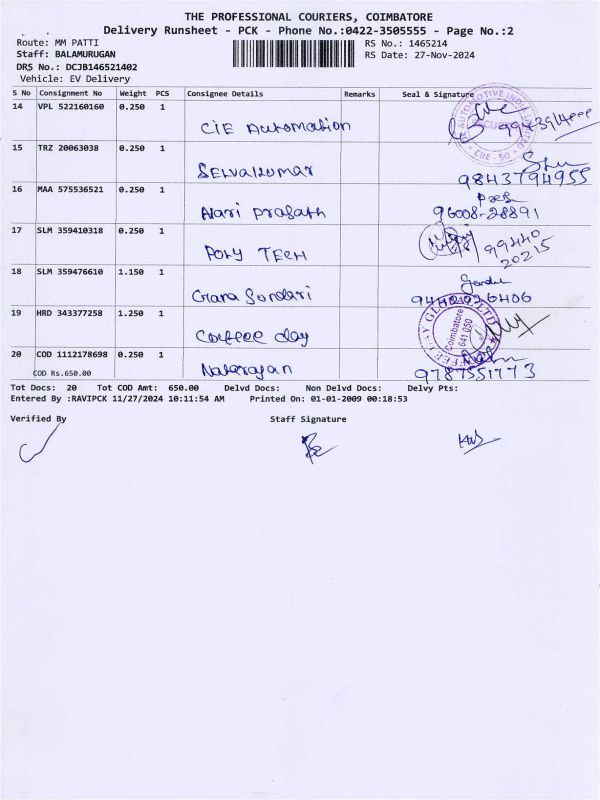 THE PROFESSIONAL COURIERS, COIMBATORE
Delivery Runsheet - PCK - Phone No.:0422-3505555 - Page No.:2
Route: MM PATTI RS No.: 1465214
Staff: BALAMURUGAN RS Date: 27-Nov-2024
DRS No.: DCJB146521402
Vehicle: EV Delivery
S No Consignment No Weight PCS Consignee Details Remarks Seal & Signature
14 VPL 522160160 0.250 1 CIE Automation
15 TRZ 20063038 0.250 1 Selvakumar 9843794955
16 MAA 575536521 0.250 1 Hari Prasath 96008-28891
17 SLM 359410318 0.250 1 Poly TECH 99440 20215
18 SLM 359476610 1.150 1 Gnana Sundari
19 HRD 343377258 1.250 1 Coffee day Coimbatore 641 050
20 COD 1112178698 0.250 1 Natarajan 9787551773
COD Rs.650.00
Tot Docs: 20 Tot COD Amt: 650.00 Delvd Docs: Non Delvd Docs: Delvy Pts:
Entered By :RAVIPCK 11/27/2024 10:11:54 AM Printed On: 01-01-2009 00:18:53
Verified By Staff Signature